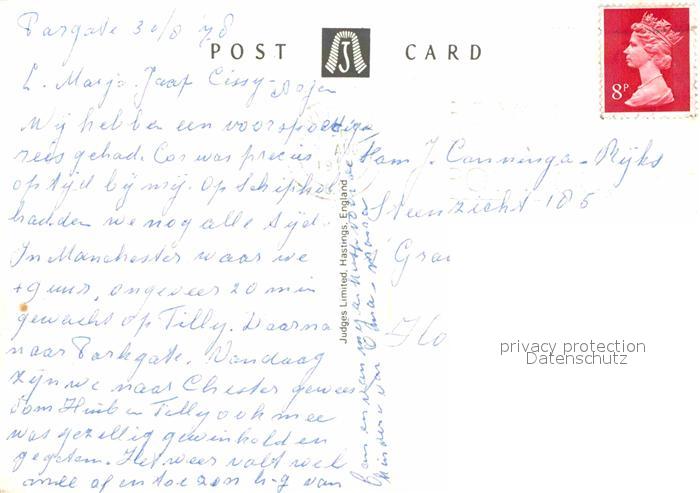 Pargate 30/8 '78
POST CARD
8P
L. Marjo. Jaap Cissy - Rojan
Wij hebben een voorspoedige
reis gehad. Cor was precies
op tijd bij mij. Op Schiphol
hadden we nog alle tijd.
In Manchester waar we
+9 uur, ongeveer 20 min
gewacht op Tilly. Daarna
naar Parkgate. Vandaag
zijn we naar Chester gewees
Tom Huib en Tilly ook mee
was gezellig gewinkeld en
gegeten. Het weer valt wel
mee af en toe zon h-g van
Judges Limited, Hastings, England
Fam J. Canninga - Rijks
Steenzicht 186
privacy protection
Datenschutz